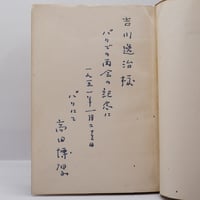 吉川逸治様
パリでの再会の記念に
一九五一年一月
パリにて
高田博厚